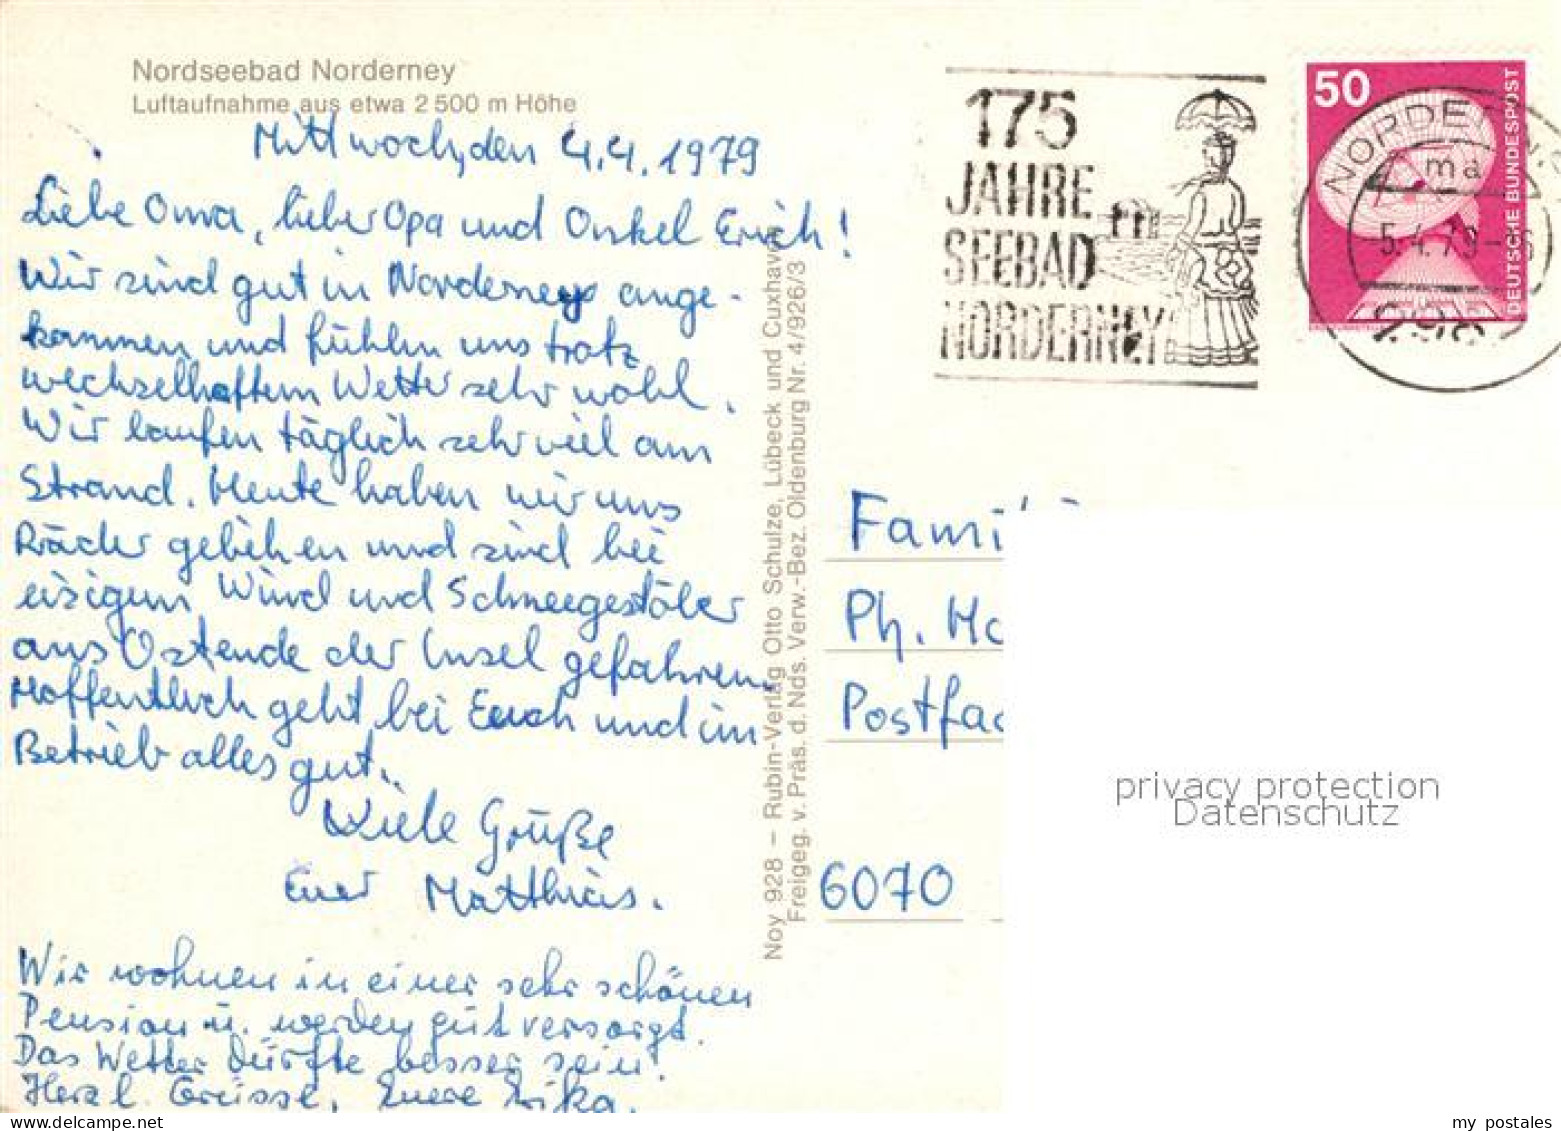 Nordseebad Norderney
Luftaufnahme aus etwa 2500 m Höhe
Mittwoch, den 4.4.1979
Liebe Oma, lieber Opa und Onkel Erich!
Wir sind gut in Norderney ange-
kommen und fühlen uns trotz
wechselhaftem Wetter sehr wohl.
Wir laufen täglich sehr viel am
Strand. Heute haben wir uns
Räder geliehen und sind bei
eisigem Wind und Schneegestöber
ans Ostende der Insel gefahren.
Hoffentlich geht bei Euch und im
Betrieb alles gut.
Viele Grüße
Euer Matthias.
Wir wohnen in einer sehr schönen
Pension u. werden gut versorgt.
Das Wetter dürfte besser sein!
Herzl. Grüsse, Euere Erika.
Noy 928 – Rubin-Verlag Otto Schulze, Lübeck und Cuxhaven
Freigeg. v. Präs. d. Nds. Verw.-Bez. Oldenburg Nr. 4/926/3
175
JAHRE
SEEBAD
NORDERNEY
50
DEUTSCHE BUNDESPOST
NORDE
ma
5.4.79-16
298
Fami
Ph.
Postfac
6070
privacy protection
Datenschutz
www.delcampe.net
my_postales